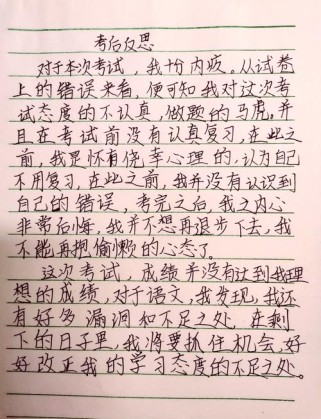 考后反思
对于本次考试，我十分内疚。从试卷
上的错误来看，便可知我对这次考
试态度的不认真，做题的马虎。并
且在考试前没有认真复习，在此之
前，我是怀有侥幸心理的，认为自己
不用复习，在此之前，我并没有认识到
自己的错误，考完之后，我之内心
非常后悔，我并不想再退步下去，我
不能再把偷懒的心态了。
这次考试，成绩并没有达到我理
想的成绩，对于语文，我发现，我还
有好多漏洞和不足之处 在剩
下的日子里，我将要抓住机会，好
好改正我的学习态度的不足之处。